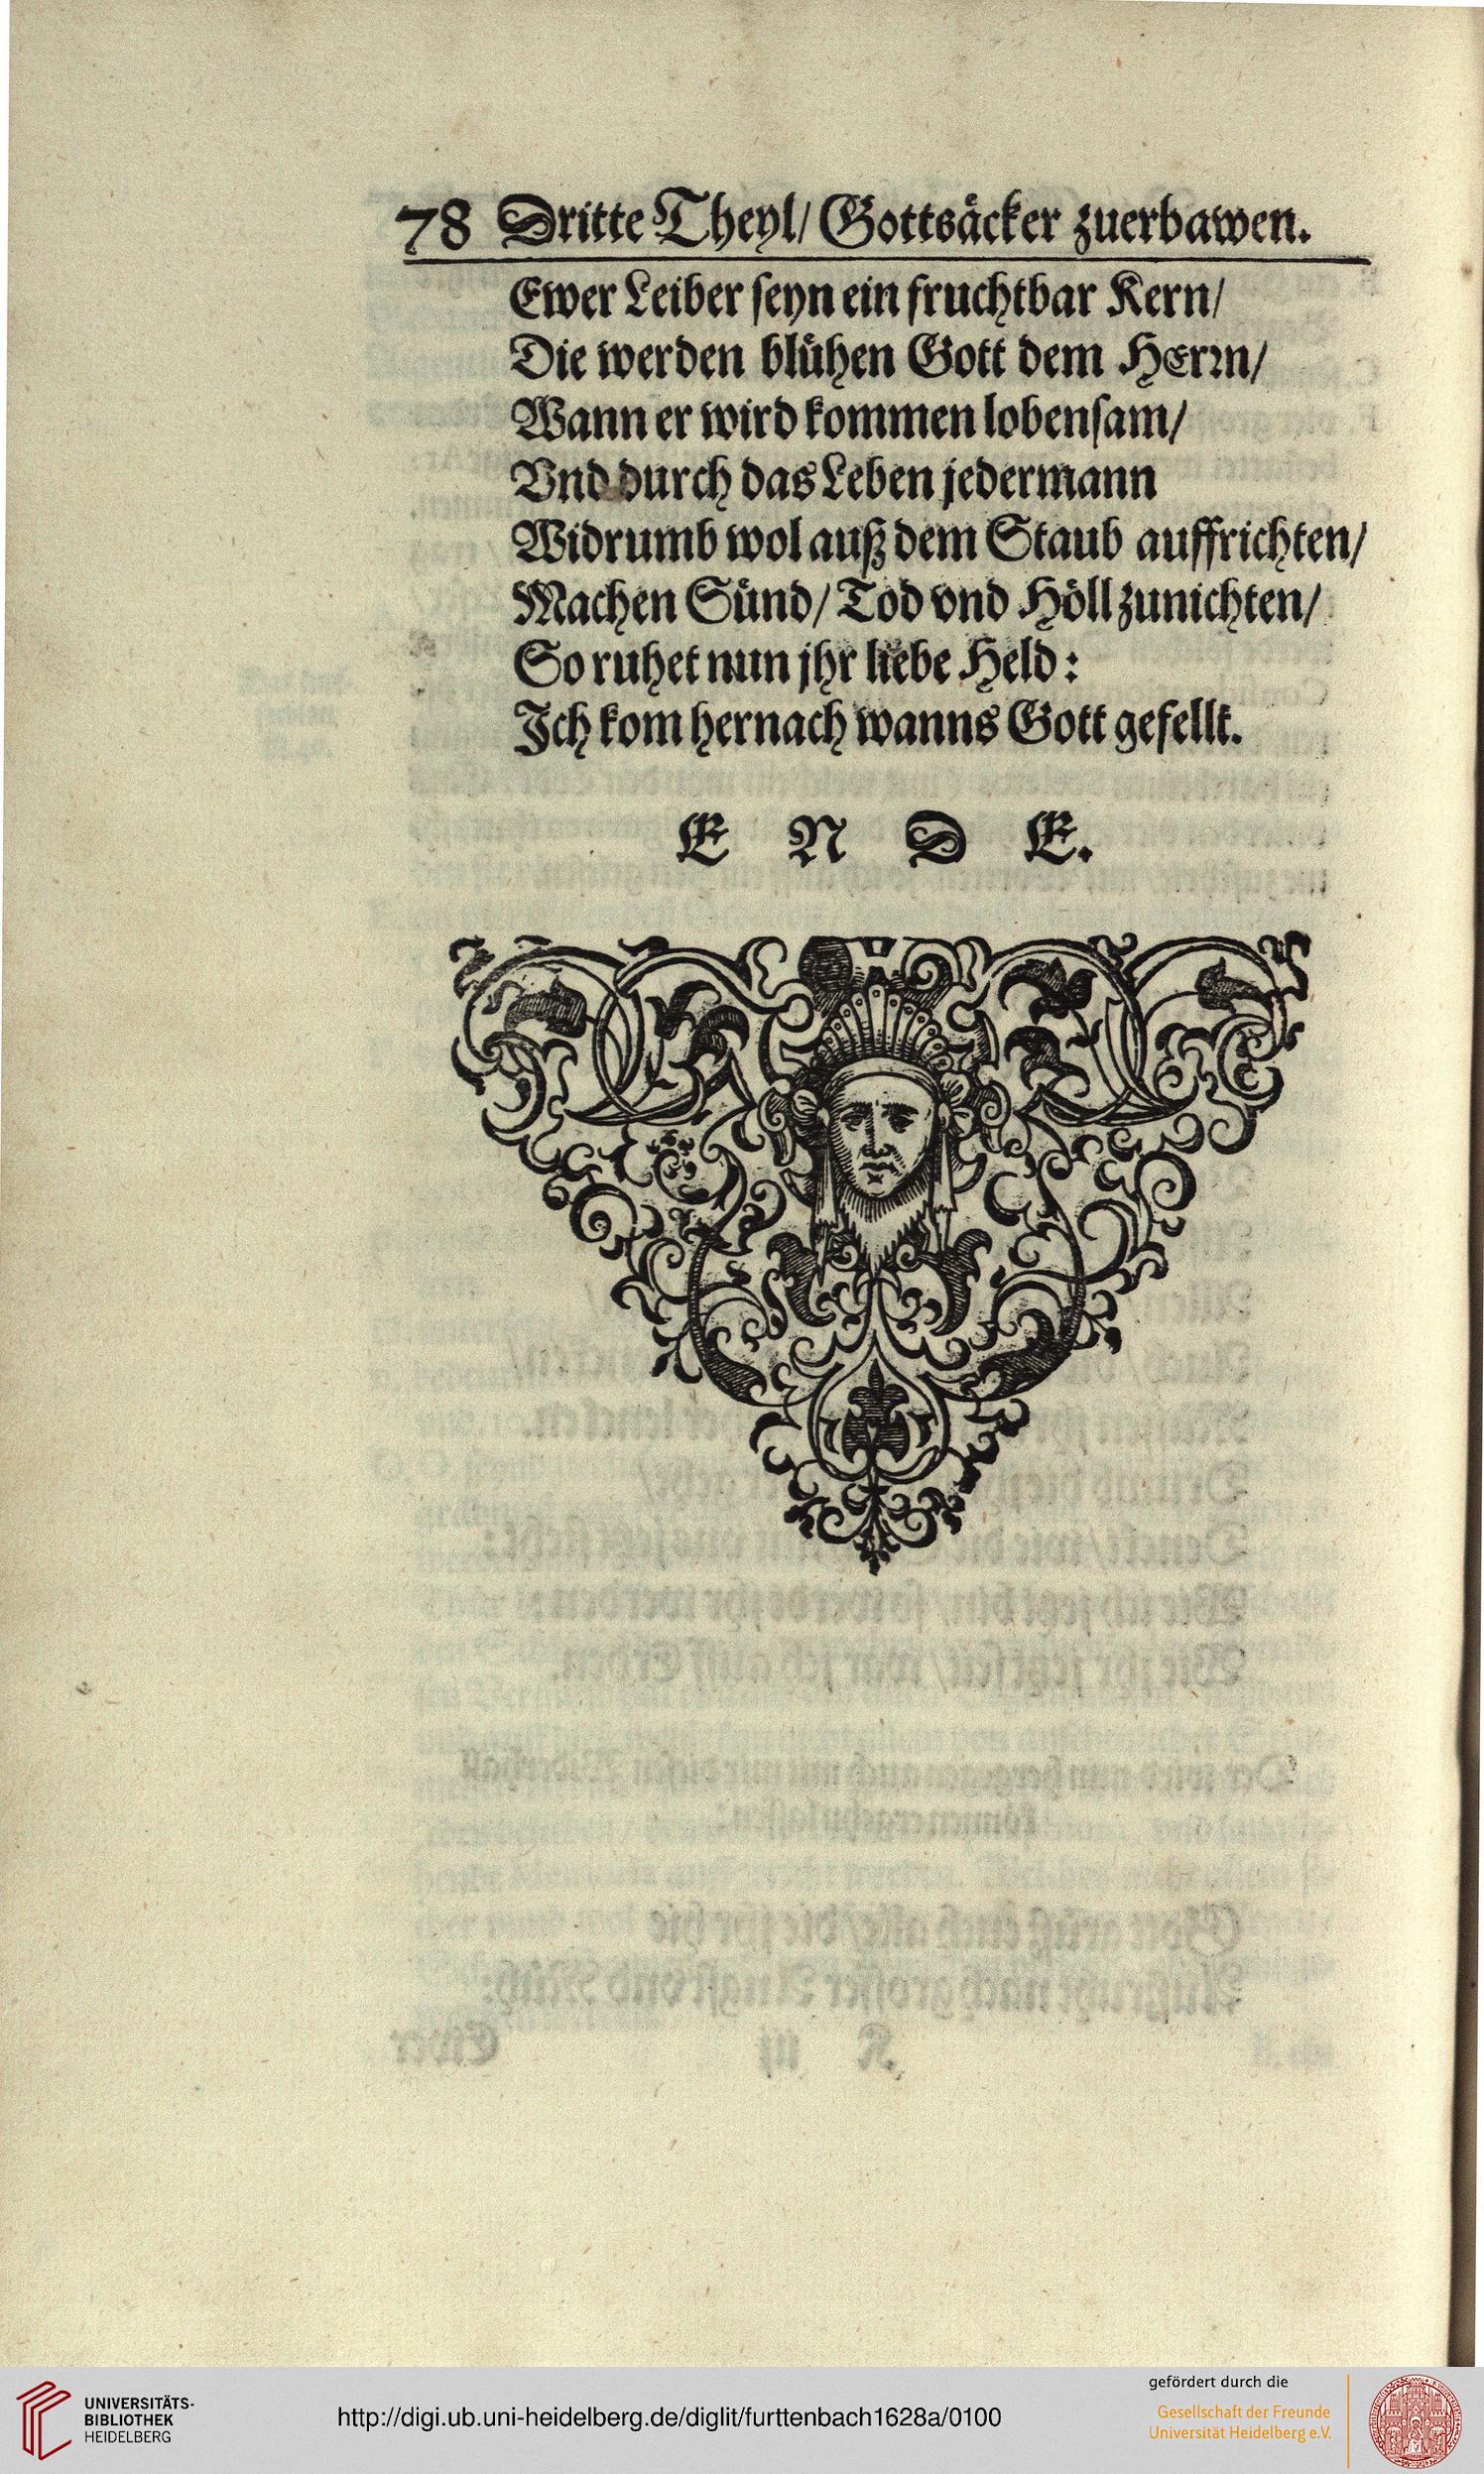 78 Dritte Theyl/ Gottsäcker zuerbawen.
Ewer Leiber seyn ein fruchtbar Kern/
Die werden blühen Gott dem HErrn/
Wann er wird kommen lobensam/
Vnd durch das Leben jedermann
Widrumb wol auß dem Staub auffrichten/
Machen Sünd/ Tod vnd Höll zunichten/
So ruhet nun jhr liebe Held:
Ich kom hernach wanns Gott gefellt.
E N D E.
UNIVERSITÄTS-
BIBLIOTHEK
HEIDELBERG
http://digi.ub.uni-heidelberg.de/diglit/furttenbach1628a/0100
gefördert durch die
Gesellschaft der Freunde
Universität Heidelberg e.V.